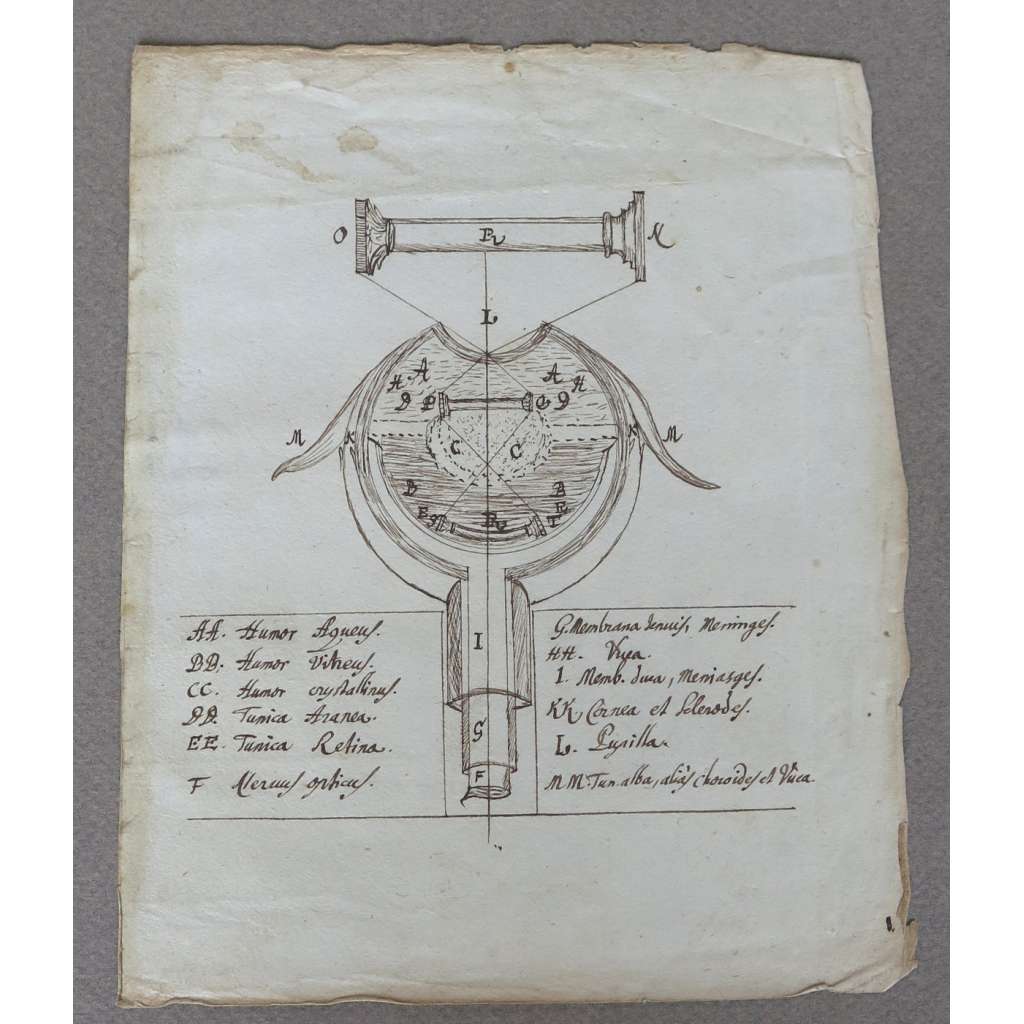 O
R
N
L
H A
A H
D P
Q D
M
K
C
C
K
M
B
B
E
R
E
T
I
S
F
AA. Humor Aqueus.
BB. Humor Vitreus.
CC. Humor crystallinus.
DD. Tunica Aranea.
EE. Tunica Retina.
F Nervus opticus.
G. Membrana tenuis, Meninges.
HH. Uvea.
I. Memb. dura, Meninges.
KK Cornea et Sclerodes.
L. Pupilla.
MM. Tun. alba, aliàs Choroides et Uvea